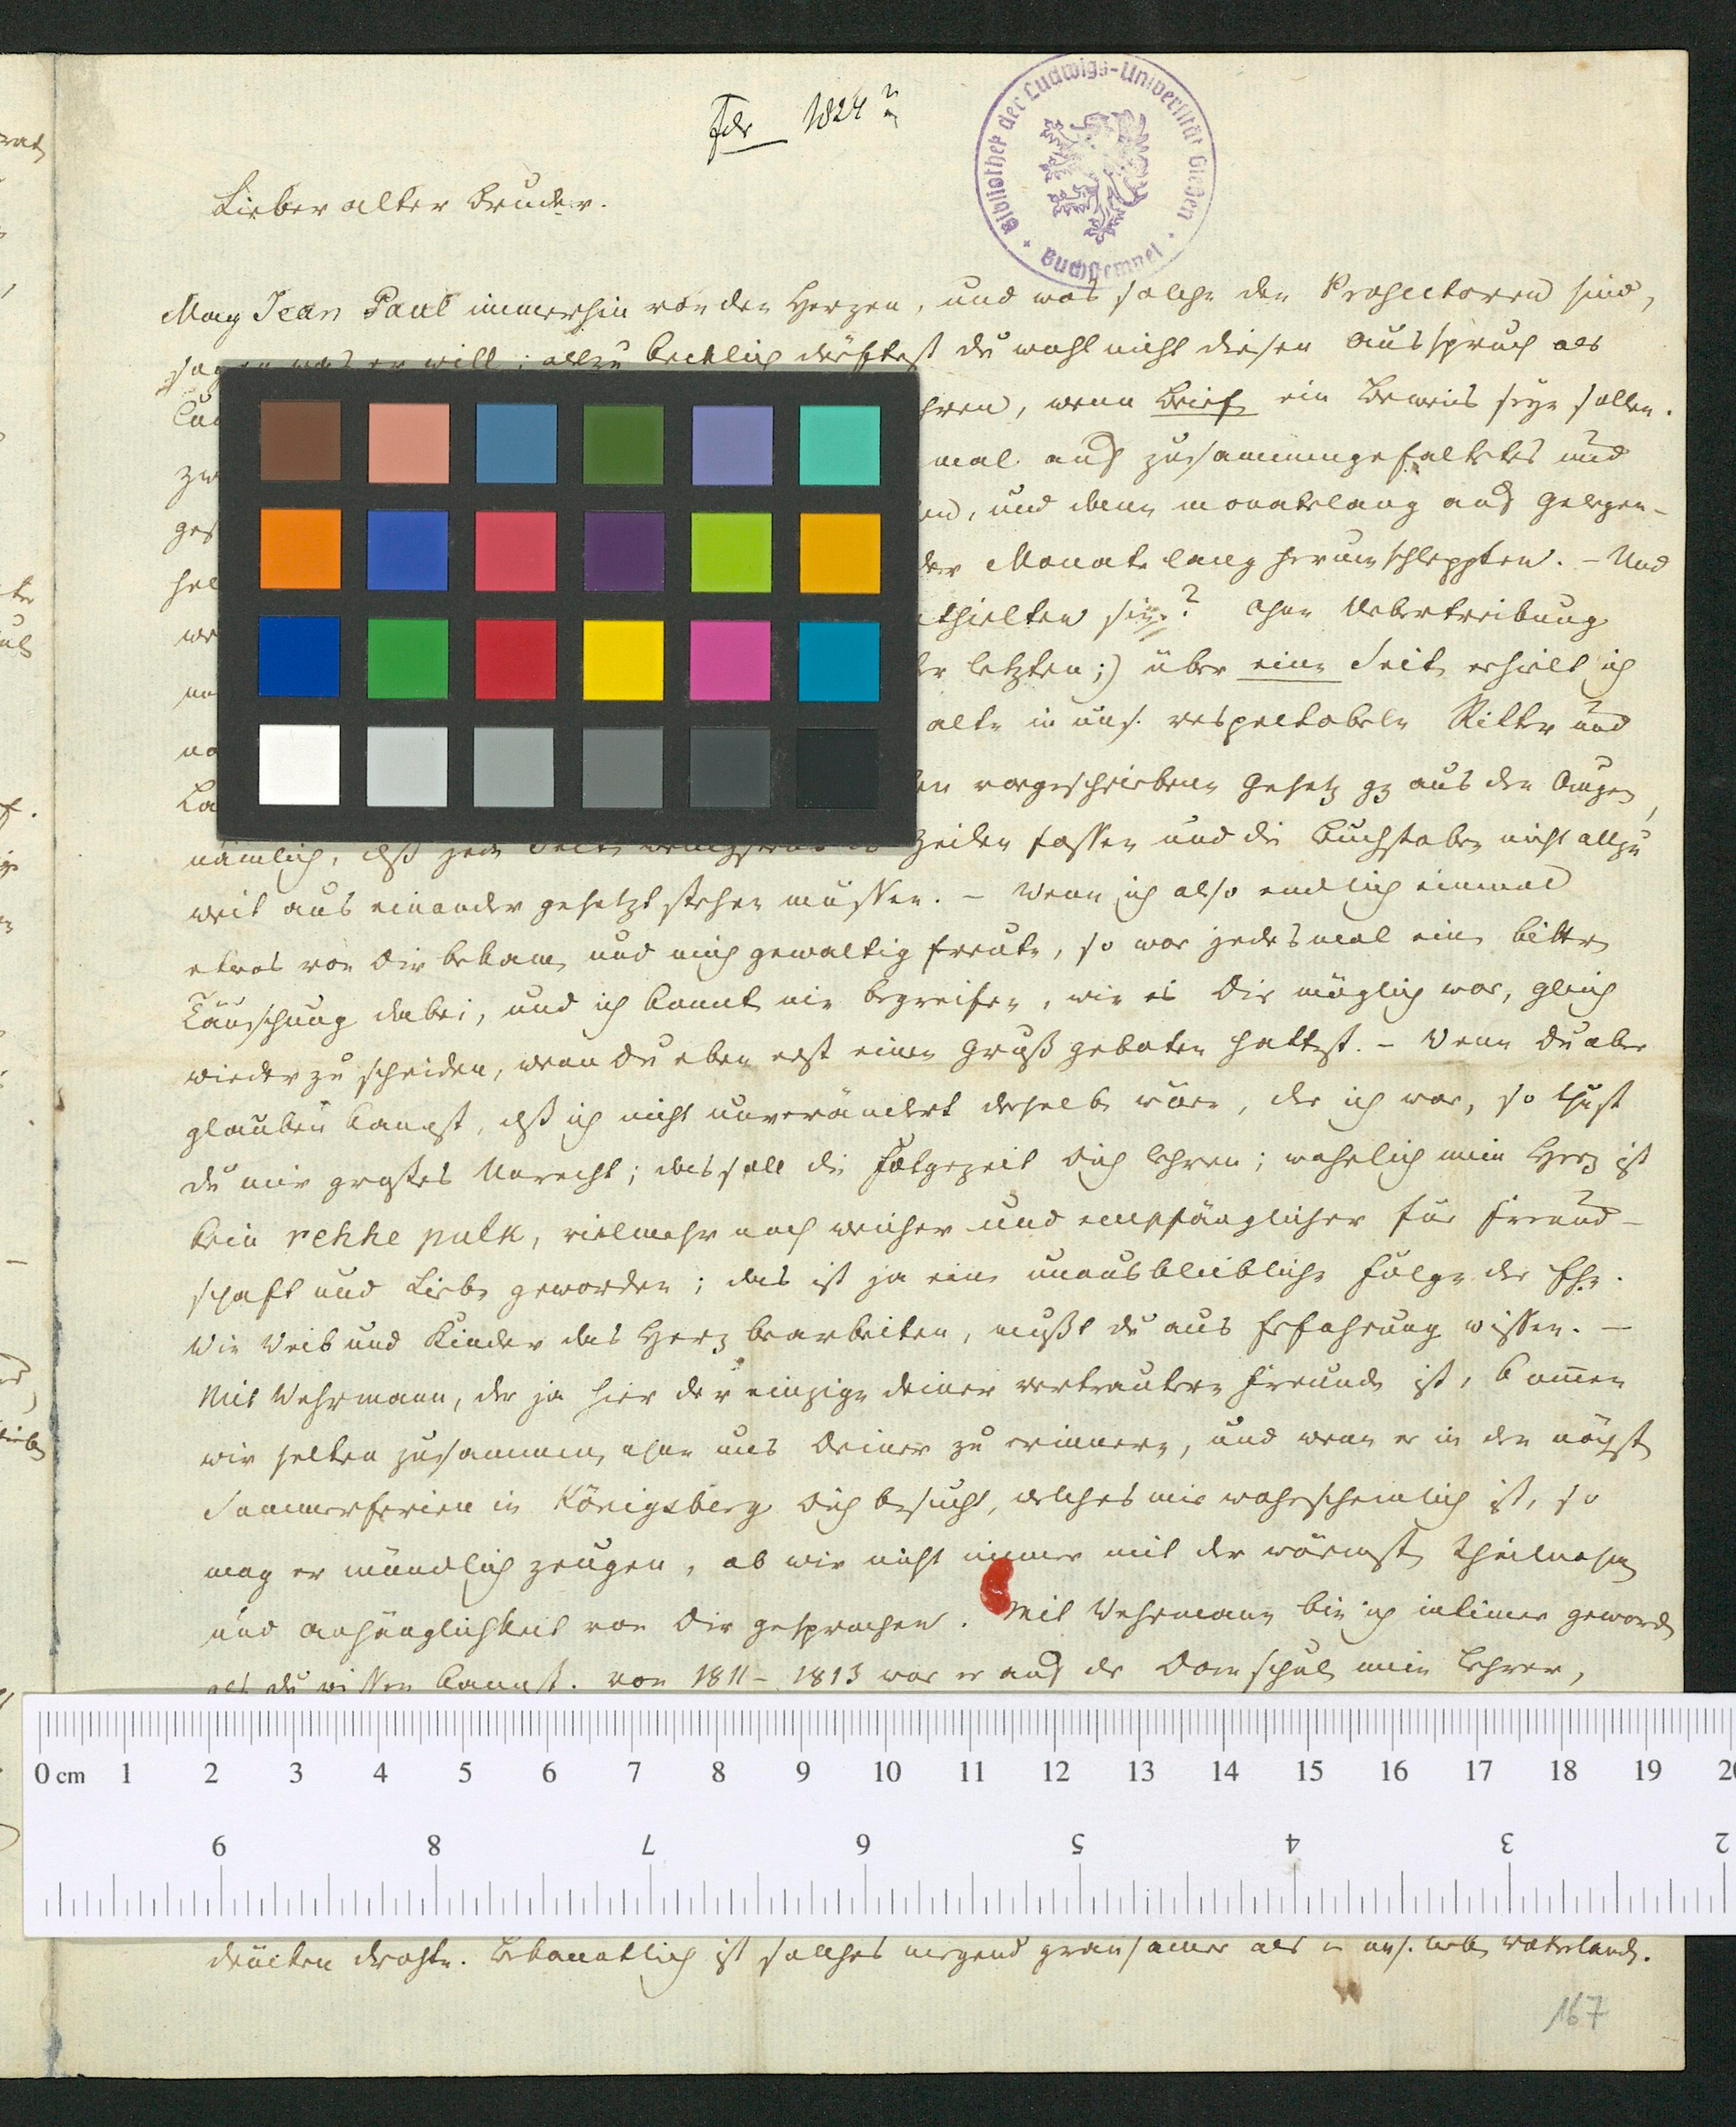 Febr 1824
Bibliothek der Ludwigs-Universität Gießen
Buchstempel
Lieber alter Bruder.
Mag Jean Paul immerhin von den Herzen, und was solche den Prosectoren sind,
sagen was er will; allzu kecklich dürftest du wohl nicht diesen Ausspruch als
hren, wenn Briefe ein Beweis seyn sollen.
mal auf zusammengefaltetes und
en, und dann monatelang auf Gelegen-
der Monate lang herumschleppten. – Und
thielten sie? Ohne Uebertreibung
er letzten;) über eine Seite erhielt ich
alte in uns. respectabeln Ritter und
en vorgeschriebene Gesetz gz aus den Augen,
nämlich, daß jede Seite wenigstens Zeilen fassen und die Buchstaben nicht allzu
weit aus einander gesetzt stehen müssen. – Wenn ich also endlich einmal
etwas von Dir bekam, und mich gewaltig freute, so war jedesmal eine bittre
Täuschung dabei, und ich konnte nie begreifen, wie es Dir möglich war, gleich
wieder zu scheiden, wenn Du eben erst einen Gruß geboten hattest. – Wenn Du aber
glauben kannst, daß ich nicht unverändert derselbe wäre, der ich war, so thust
du mir großes Unrecht; das soll die Folgezeit Dich lehren; wahrlich mein Herz ist
kein rehhe pulk, vielmehr noch weicher und empfänglicher für Freund-
schaft und Liebe geworden; das ist ja eine unausbleibliche Folge der Ehe.
Wie Weib und Kinder das Herz bearbeiten, mußt du aus Erfahrung wissen. –
Mit Wehrmann, der ja hier der einzige deiner vertrautern Freunde ist, kommen
wir selten zusammen, ohne uns Deiner zu erinnern, und wenn er in den nächst
Sommerferien in Königsberg Dich besucht, welches mir wahrscheinlich ist, so
mag er mündlich zeugen, ob wir nicht immer mit der wärmsten Theilnahme
und Anhänglichkeit von Dir gesprochen. Mit Wehrmann bin ich intimer geworden
als du wissen kannst. Von 1811– 1813 war er auf der Domschule mein Lehrer,
0 cm 1 2 3 4 5 6 7 8 9 10 11 12 13 14 15 16 17 18 19 20
9 8 7 6 5 4 3 2
drücken drohte. Bekanntlich ist solches nirgend grausamer als in uns. lieben Vaterlande.
167